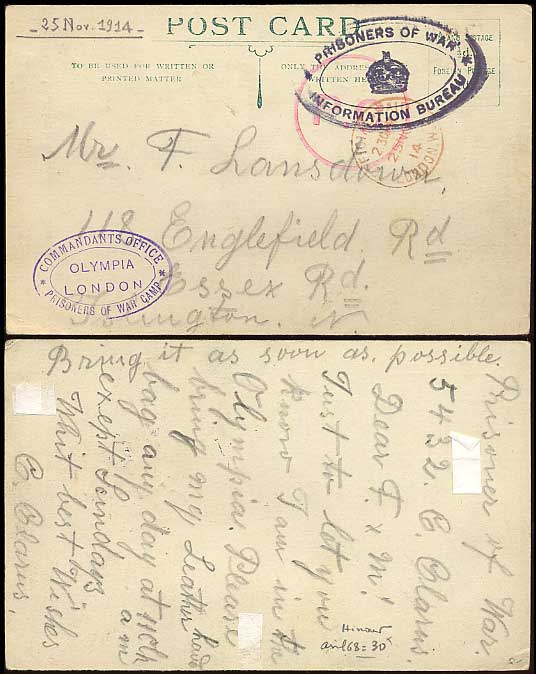 25 Nov. 1914
POST CARD
TO BE USED FOR WRITTEN OR
PRINTED MATTER
ONLY THE ADDRESS
WRITTEN HERE
PRISONERS OF WAR
INFORMATION BUREAU
Mr. F. Lansdown,
118 Englefield Rd
Essex Rd.
Islington. N
COMMANDANTS OFFICE
OLYMPIA
LONDON
PRISONERS OF WAR CAMP
Bring it as soon as possible.
Prisoner of War.
5432. C. Clarus.
Dear F. x M!
Just to let you
know I am in the
Olympia. Please
bring my Leather hand
bag any day at 11 ock
a m
exept Sundays
Whit best Wishes
C. Clarus.